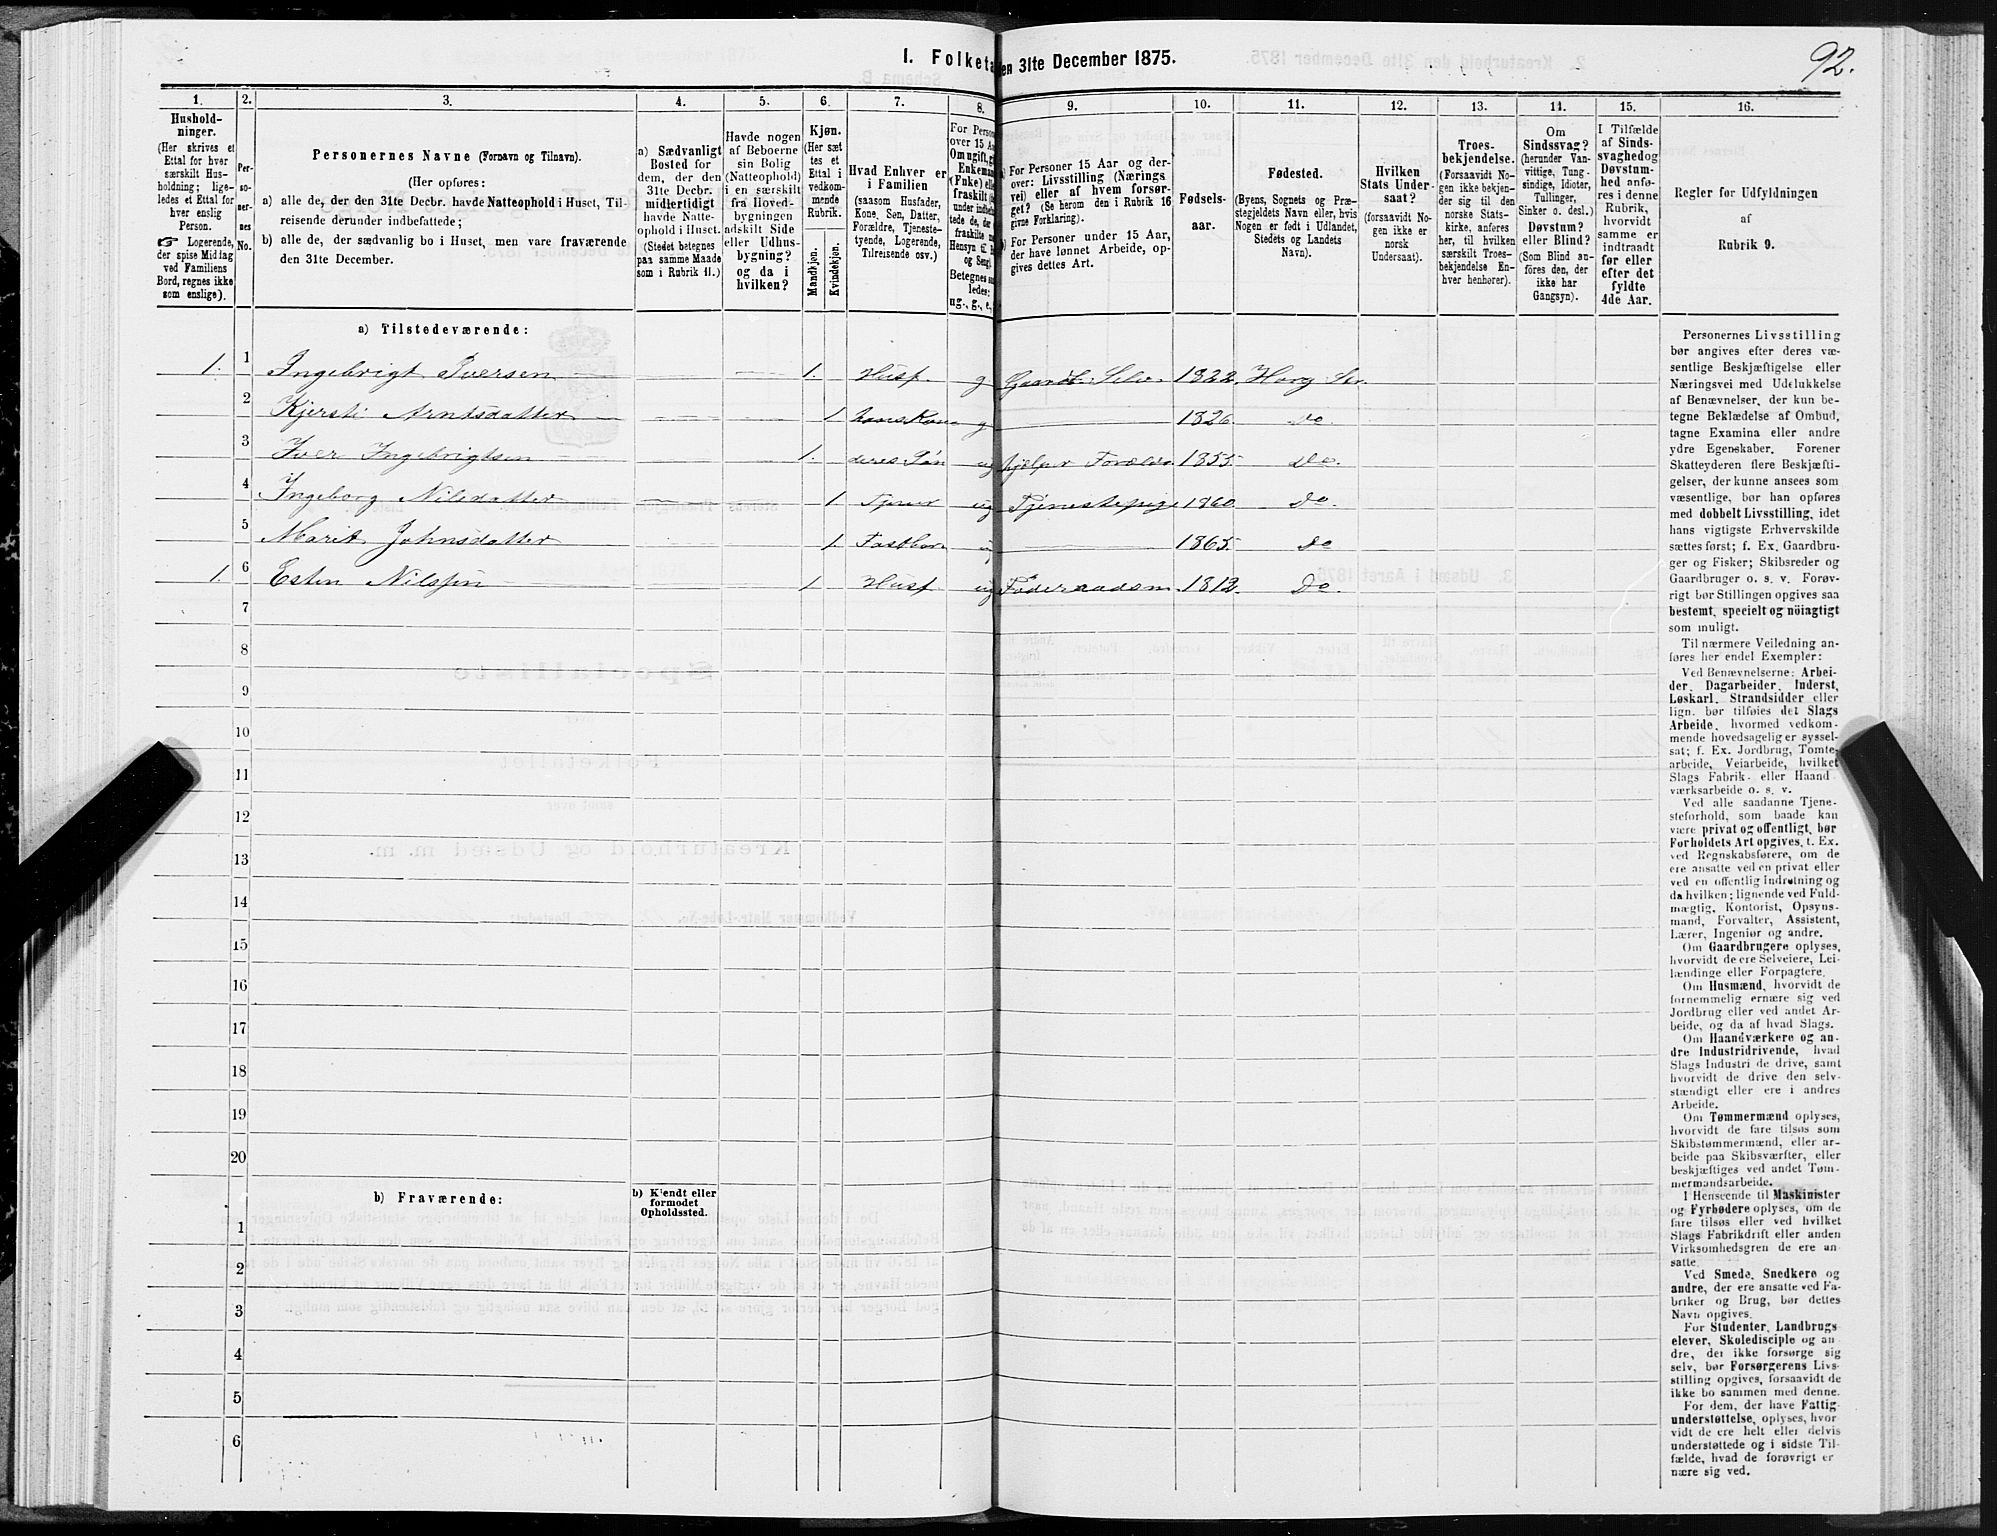 92.
I. Folketa
en 31te December 1875.
1. 2. 3. 4. 5. 6. 7. 8. 9. 10. 11. 12. 13. 14. 15. 16.
Hushold-
ninger.
(Her skrives et
Ettal for hver
særskilt Hus-
holdning; lige-
ledes et Ettal for
hver enslig
Person.
☞ Logerende,
der spise Middag
ved Familiens
Bord, regnes ikke
som enslige).
Per-
so-
ner-
nes
No.
Personernes Navne (Fornavn og Tilnavn).
(Her opføres:
a) alle de, der den 31te Decbr. havde Natteophold i Huset, Til-
reisende derunder indbefattede;
b) alle de, der sædvanlig bo i Huset, men vare fraværende
den 31te December.
a) Sædvanligt
Bosted for
dem, der den
31te Decbr.
midlertidigt
havde Natte-
ophold i Huset.
(Stedet betegnes
paa samme Maade
som i Rubrik 11.)
Havde nogen
af Beboerne
sin Bolig
(Natteophold)
i en særskilt
fra Hoved-
bygningen
adskilt Side
eller Udhus-
bygning?
og da i
hvilken?
Kjøn.
(Her sæt
tes et
Ettal i
vedkom-
mende
Rubrik.
Mandkjøn.
Kvindekjøn.
Hvad Enhver er
i Familien
(saasom Husfader,
Kone, Søn, Datter,
Forældre, Tjeneste-
tyende, Logerende,
Tilreisende osv.)
For Person
over 15 Aa
Om ugift, gi
Enkeman
(Enke) elle
fraskilt (
under indbe
tede de, de
fraskilte m
Hensyn til
og Seng).
Betegnes saa
ledes:
ug., g., e.,
a) For Personer 15 Aar og der-
over: Livsstilling (Nærings
vei) eller af hvem forsør-
get? (Se herom den i Rubrik 16
givne Forklaring).
b) For Personer under 15 Aar,
der have lønnet Arbeide, op-
gives dettes Art.
Fødsels-
aar.
Fødested.
(Byens, Sognets og Præ-
stegjeldets Navn eller, hvis
Nogen er født i Udlandet,
Stedets og Landets
Navn).
Hvilken
Stats Under-
saat?
(forsaavidt No-
gen ikke er
norsk
Undersaat).
Troes-
bekjendelse.
(Forsaavidt No-
gen ikke bekjen-
der sig til den
norske Stats-
kirke, anføres
her, til hvilken
særskilt Troes-
bekjendelse En-
hver henhører).
Om
Sindssvag?
(herunder Van-
vittige, Tung-
sindige, Idioter,
Tullinger,
Sinker o. desl.)
Døvstum?
eller Blind?
(Som Blind an-
føres den, der
ikke har
Gangsyn).
I Tilfælde
af Sinds-
svaghed og
Døvstum-
hed anfø-
res i denne
Rubrik,
hvorvidt
samme er
indtraadt
før eller
efter det
fyldte
4de Aar.
Regler for Udfyldningen
af
Rubrik 9.
a) Tilstedeværende:
1. 1 Ingebrigt Iversen 1. Husf. g Gaardb. Selv. 1822. Horg Sr.
2 Kjersti Arntsdatter 1. hans Kone g 1826. Do.
3 Iver Ingebrigtsen 1. deres Søn ug hjelper Foræld. 1855. Do.
4 Ingeborg Nilsdatter 1. Tjener ug Tjenestepige 1860. Do.
5 Marit Johnsdatter 1. Fostbarn 1865. Do
1. 6 Esten Nilssen 1. Husf ug Føderaadsm. 1812. Do.
7
8
9
10
11
12
13
14
15
16
17
18
19
20
b) Fraværende:
b) Kjendt eller
formodet
Opholdssted.
1
2
3
4
5
6
Personernes Livsstilling
bør angives efter deres væ-
sentlige Beskjæftigelse eller
Næringsvei med Udelukkelse
af Benævnelser, der kun be-
tegne Beklædelse af Ombud,
tagne Examina eller andre
ydre Egenskaber. Forener
Skatteyderen flere Beskjæfti-
gelser, der kunne ansees som
væsentlige, bør han opføres
med dobbelt Livsstilling, idet
hans vigtigste Erhvervskilde
sættes først; f. Ex. Gaardbru-
ger og Fisker; Skibsreder og
Gaardbruger o. s. v. Forøv-
rigt bør Stillingen opgives saa
bestemt, specielt og nöiagtigt
som muligt.
Til nærmere Veiledning an-
føres her endel Exempler:
Ved Benævnelserne: Arbei-
der, Dagarbeider, Inderst,
Løskarl, Strandsidder eller
lign. bør tilføies det Slags
Arbeide, hvormed vedkom-
mende hovedsagelig er syssel-
sat; f. Ex. Jordbrug, Tomte-
arbeide, Veiarbeide, hvilket
Slags Fabrik- eller Haand-
værksarbeide o. s. v.
Ved alle saadanne Tjene-
steforhold, som baade kan
være privat og offentligt, bør
Forholdets Art opgives, t. Ex.
ved Regnskabsførere, om de
ere ansatte ved en privat eller
ved en offentlig Indretning og
da hvilken; lignende ved Fuld-
mægtig, Kontorist, Opsyns-
mand, Forvalter, Assistent,
Lærer, Ingeniør og andre.
Om Gaardbrugere oplyses,
hvorvidt de ere Selveiere, Lei-
lændinge eller Forpagtere.
Om Husmænd, hvorvidt de
fornemmelig ernære sig ved
Jordbrug eller ved andet Ar-
beide, og da af hvad Slags.
Om Haandværkere og an-
dre Industridrivende, hvad
Slags Industri de drive, samt
hvorvidt de drive den selv-
stændigt eller ere i andres
Arbeide.
Om Tømmermænd oplyses,
hvorvidt de fare tilsøs som
Skibstømmermænd, eller ar-
beide paa Skibsværfter, eller
beskjæftiges ved andet Tøm-
mermandsarbeide.
I Henseende til Maskinister
og Fyrbødere oplyses, om de
fare tilsøs eller ved hvilket
Slags Fabrikdrift eller anden
Virksomhedsgren de ere an-
satte.
Ved Smede, Snedkere og
andre, der ere ansatte ved Fa-
briker og Brug, bør dettes
Navn opgives.
For Studenter, Landbrugs-
elever, Skoledisciple og an
dre, der ikke forsørge sig
selv, bør Forsørgerens Livs-
stilling opgives, forsaavidt de
ikke bo sammen med denne.
For dem, der have Fattig-
understøttelse, oplyses, hvor
vidt de ere helt eller delvis
understøttede og i sidste Til-
fælde, hvad de forøvrigt er
nære sig ved.